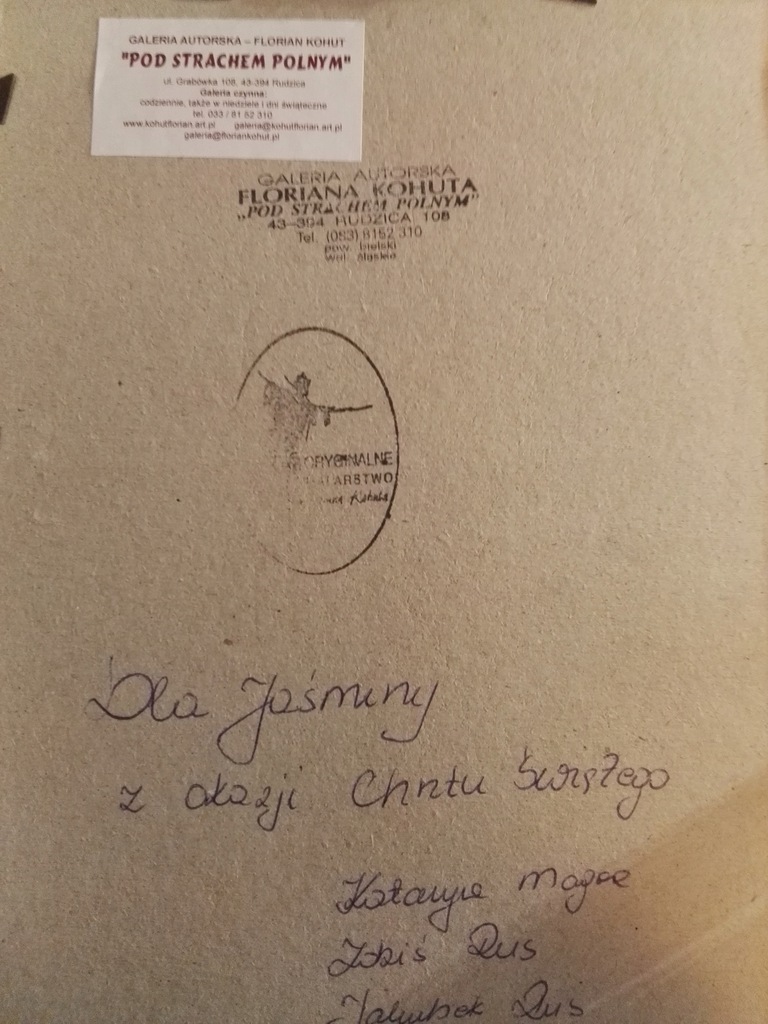 GALERIA AUTORSKA – FLORIAN KOHUT
"POD STRACHEM POLNYM"
ul. Grabówka 108, 43-394 Rudzica
Galeria czynna:
codziennie, także w niedziele i dni świąteczne
tel. 033 / 81 52 310
www.kohutflorian.art.pl galeria@kohutflorian.art.pl
galeria@floriankohut.pl
GALERIA AUTORSKA
FLORIANA KOHUTA
„POD STRACHEM POLNYM"
43-394 RUDZICA 108
Tel. (033) 8152 310
pow. bielski
woj. śląskie
ORYGINALNE
Dla Jaśminy
z okazji Chrztu Świętego
Katarzyna
Zbiś Dus
Jakubek Dus